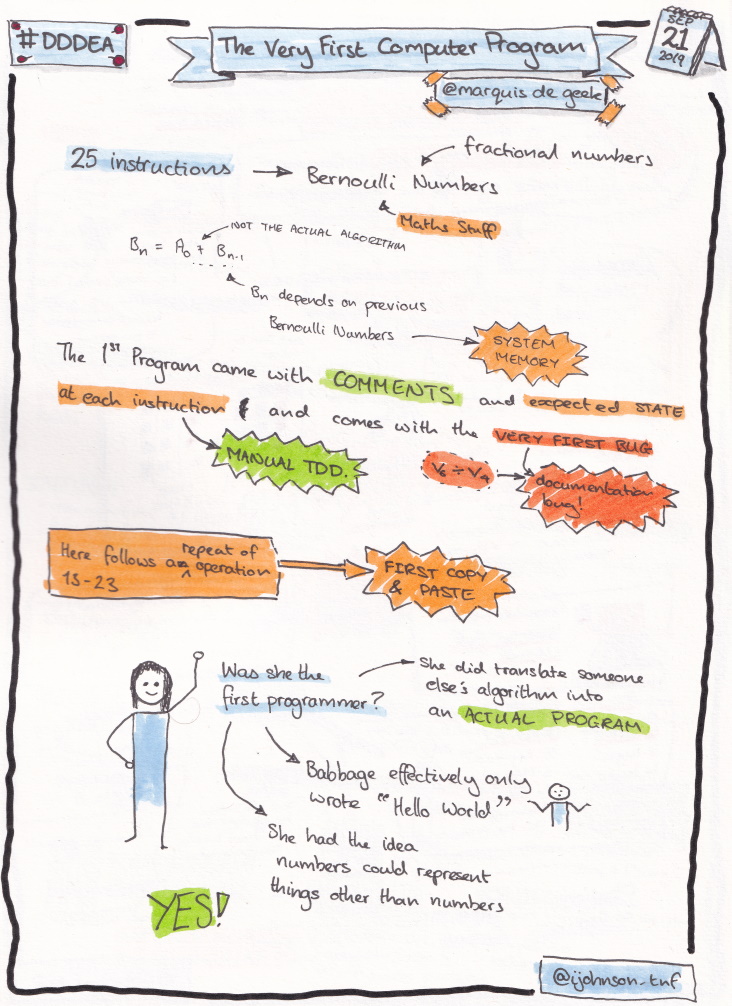 #DDDEA
The Very First Computer Program
SEP
21
2019
@marquis de geek
25 instructions
Bernoulli Numbers
fractional numbers
Maths Stuff
NOT THE ACTUAL ALGORITHM
Bn = A0 + Bn-1
Bn depends on previous
Bernoulli Numbers
SYSTEM
MEMORY
The 1ST Program came with COMMENTS and expected STATE
at each instruction and comes with the VERY FIRST BUG
MANUAL TDD.
V5 ÷ V4
documentation
bug!
Here follows a repeat of operation
13-23
FIRST COPY
& PASTE
Was she the
first programmer?
She did translate someone
else's algorithm into
an ACTUAL PROGRAM
Babbage effectively only
wrote "Hello World"
She had the idea
numbers could represent
things other than numbers
YES!
@ijohnson_tnf